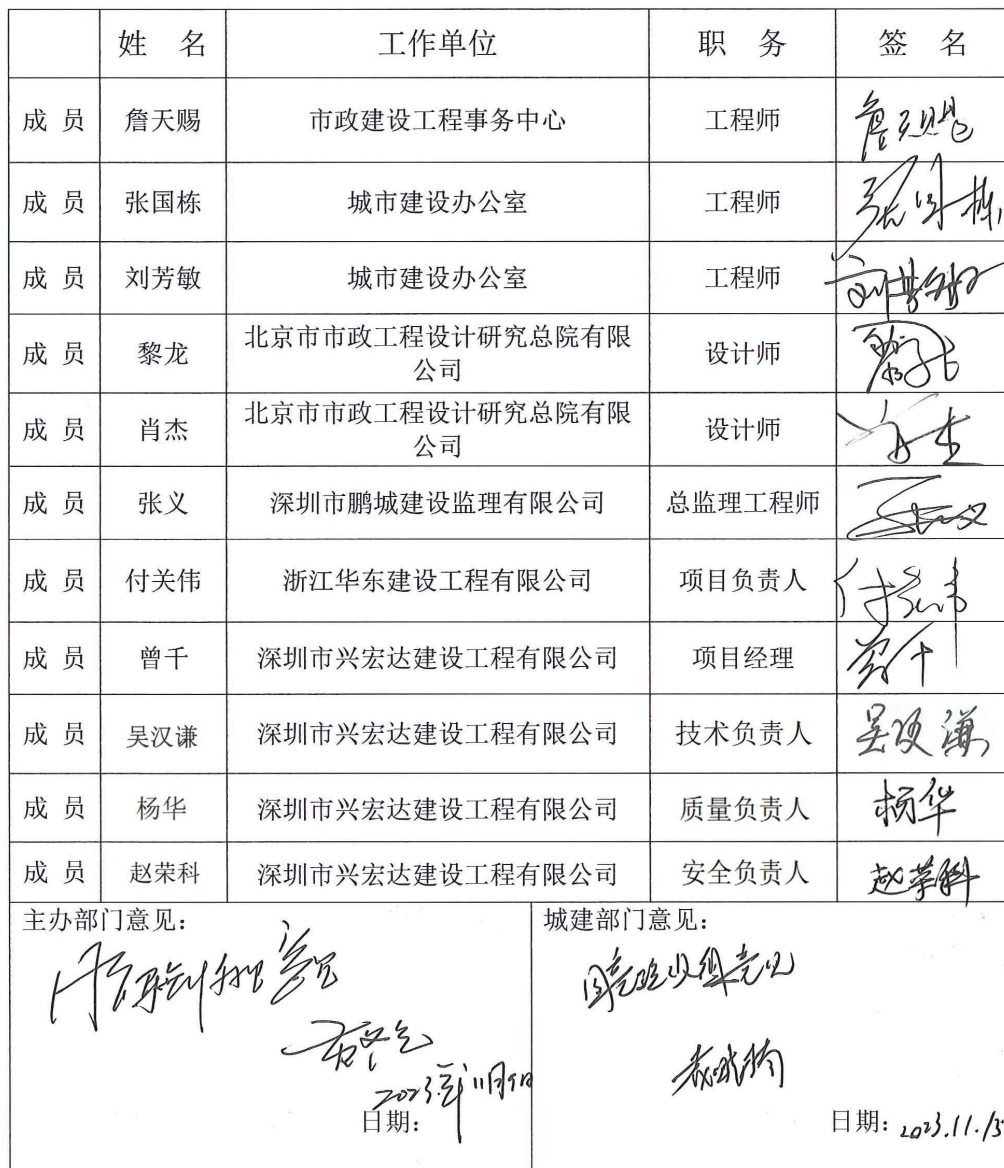 姓 名 工作单位 职 务 签 名
成 员 詹天赐 市政建设工程事务中心 工程师 詹天赐
成 员 张国栋 城市建设办公室 工程师 张国栋
成 员 刘芳敏 城市建设办公室 工程师 刘芳敏
成 员 黎龙 北京市市政工程设计研究总院有限 设计师 黎龙
公司
成 员 肖杰 北京市市政工程设计研究总院有限 设计师 肖杰
公司
成 员 张义 深圳市鹏城建设监理有限公司 总监理工程师 张义
成 员 付关伟 浙江华东建设工程有限公司 项目负责人 付关伟
成 员 曾千 深圳市兴宏达建设工程有限公司 项目经理 曾千
成 员 吴汉谦 深圳市兴宏达建设工程有限公司 技术负责人 吴汉谦
成 员 杨华 深圳市兴宏达建设工程有限公司 质量负责人 杨华
成 员 赵荣科 深圳市兴宏达建设工程有限公司 安全负责人 赵荣科
主办部门意见：
同意验收组意见
2023年11月9日
日期：
城建部门意见：
同意验收组意见
日期：2023.11.15